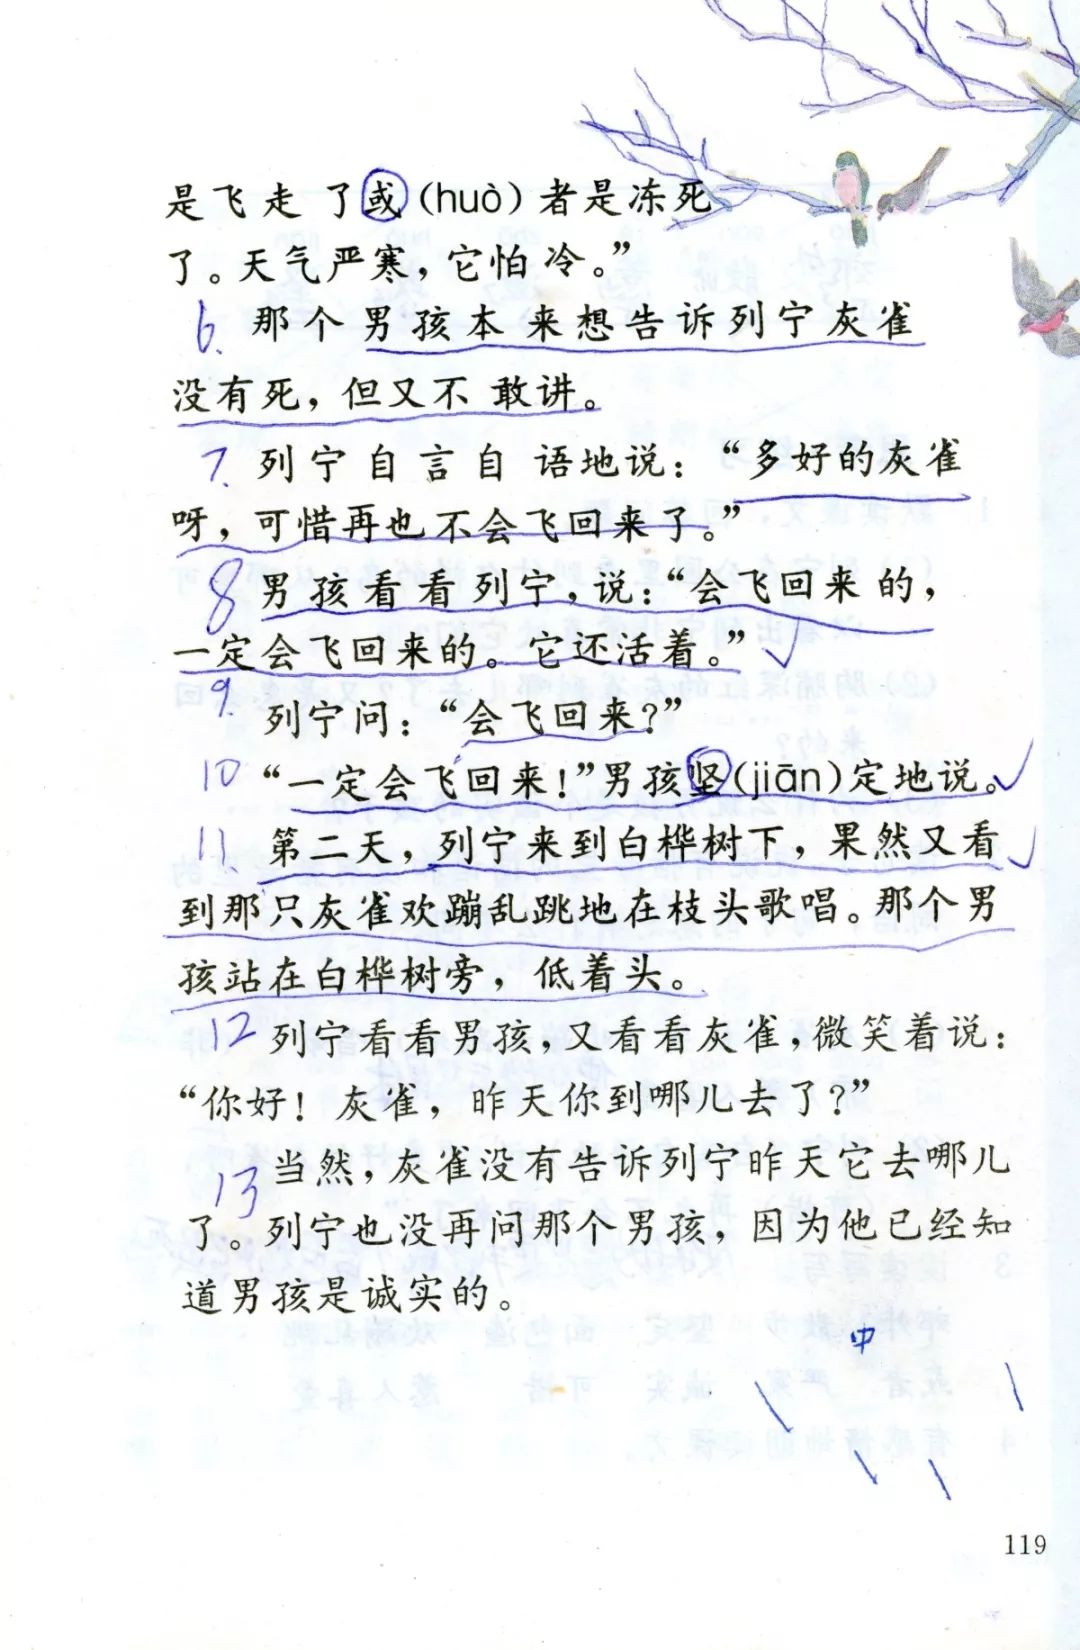 是飞走了或(huò)者是冻死
了。天气严寒，它怕冷。”
6. 那个男孩本来想告诉列宁灰雀
没有死，但又不敢讲。
7. 列宁自言自语地说：“多好的灰雀
呀，可惜再也不会飞回来了。”
8 男孩看看列宁，说：“会飞回来的，
一定会飞回来的。它还活着。”
9. 列宁问：“会飞回来？”
10 “一定会飞回来！”男孩坚(jiān)定地说。
11. 第二天，列宁来到白桦树下，果然又看
到那只灰雀欢蹦乱跳地在枝头歌唱。那个男
孩站在白桦树旁，低着头。
12 列宁看看男孩，又看看灰雀，微笑着说：
“你好！灰雀，昨天你到哪儿去了？”
13 当然，灰雀没有告诉列宁昨天它去哪儿
了。列宁也没再问那个男孩，因为他已经知
道男孩是诚实的。
中
119